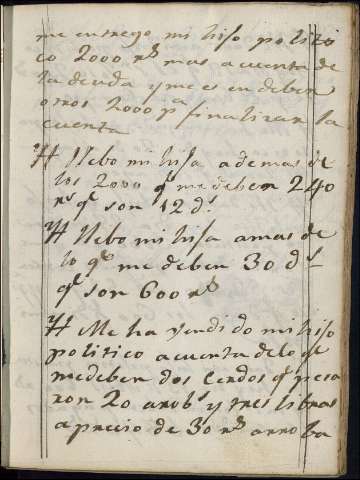 me entrego mi hijo politi
co 2000 rs mas a cuenta de
la deuda y me es en deber
otros 2000 pa finalizar la
cuenta
# Llebo mi hija ademas de
los 2000 qe me deben 240
rs qe son 12 ds
# Llebo mi hija a mas de
lo qe me deben 30 ds
qe son 600 rs
# Me ha vendido mi hijo
politico a cuenta de lo qe
me deben dos cerdos qe pesa
ron 20 arobs y tres libras
a precio de 30 rs arroba